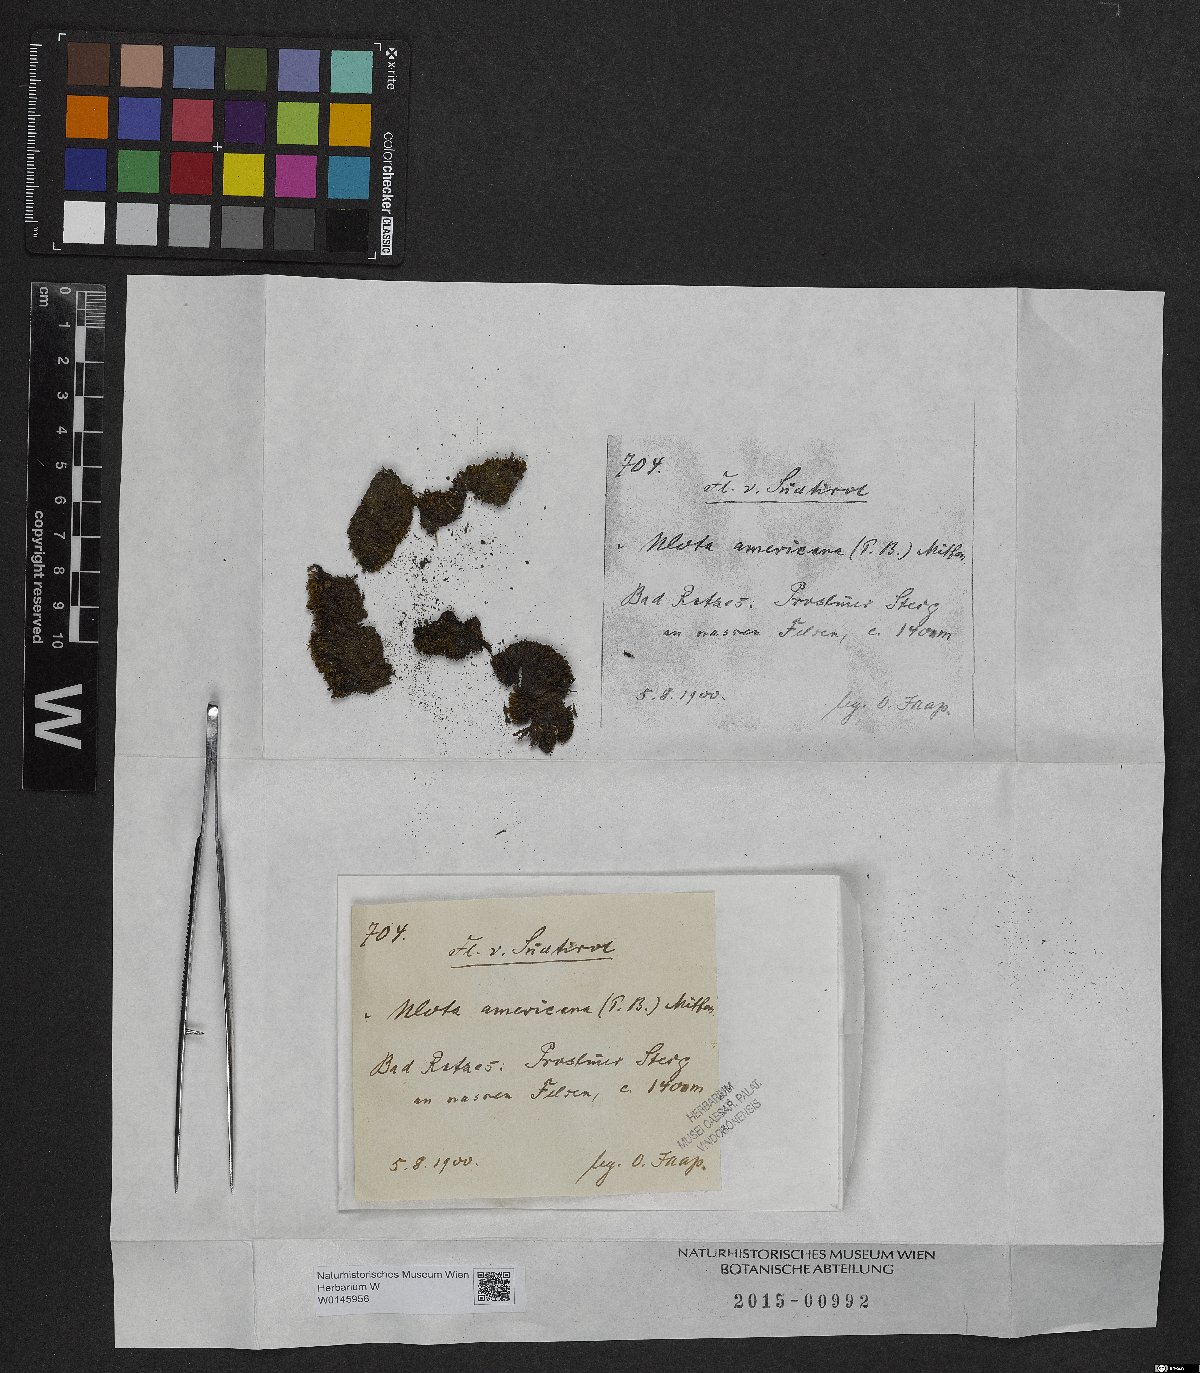 x-rite
colorchecker CLASSIC
mm
cm
0 1 2 3 4 5 6 7 8 9 10
copyright reserved
W
704.
Fl. v. Südtirol
Ulota americana (P. B.) Mitten
Bad Ratzes: Prosliner Steig
an nassen Felsen, c. 1400m
5.8.1900.
leg. O. Jaap.
704.
Fl. v. Südtirol
Ulota americana (P. B.) Mitten
Bad Ratzes: Prosliner Steig
an nassen Felsen, c. 1400m
5.8.1900.
leg. O. Jaap.
HERBARIUM
MUSEI CAESAR. PALAT.
VINDOBONENSIS
NATURHISTORISCHES MUSEUM WIEN
BOTANISCHE ABTEILUNG
2015-00992
Naturhistorisches Museum Wien
Herbarium W
W0145956